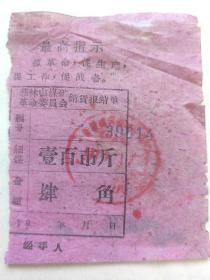 最高指示
抓革命，促生产，
促工作，促战备。
林山煤矿
革命委员会 销货报销单
编号 39614
壹百市斤
肆角
19 年 月 日
经手人